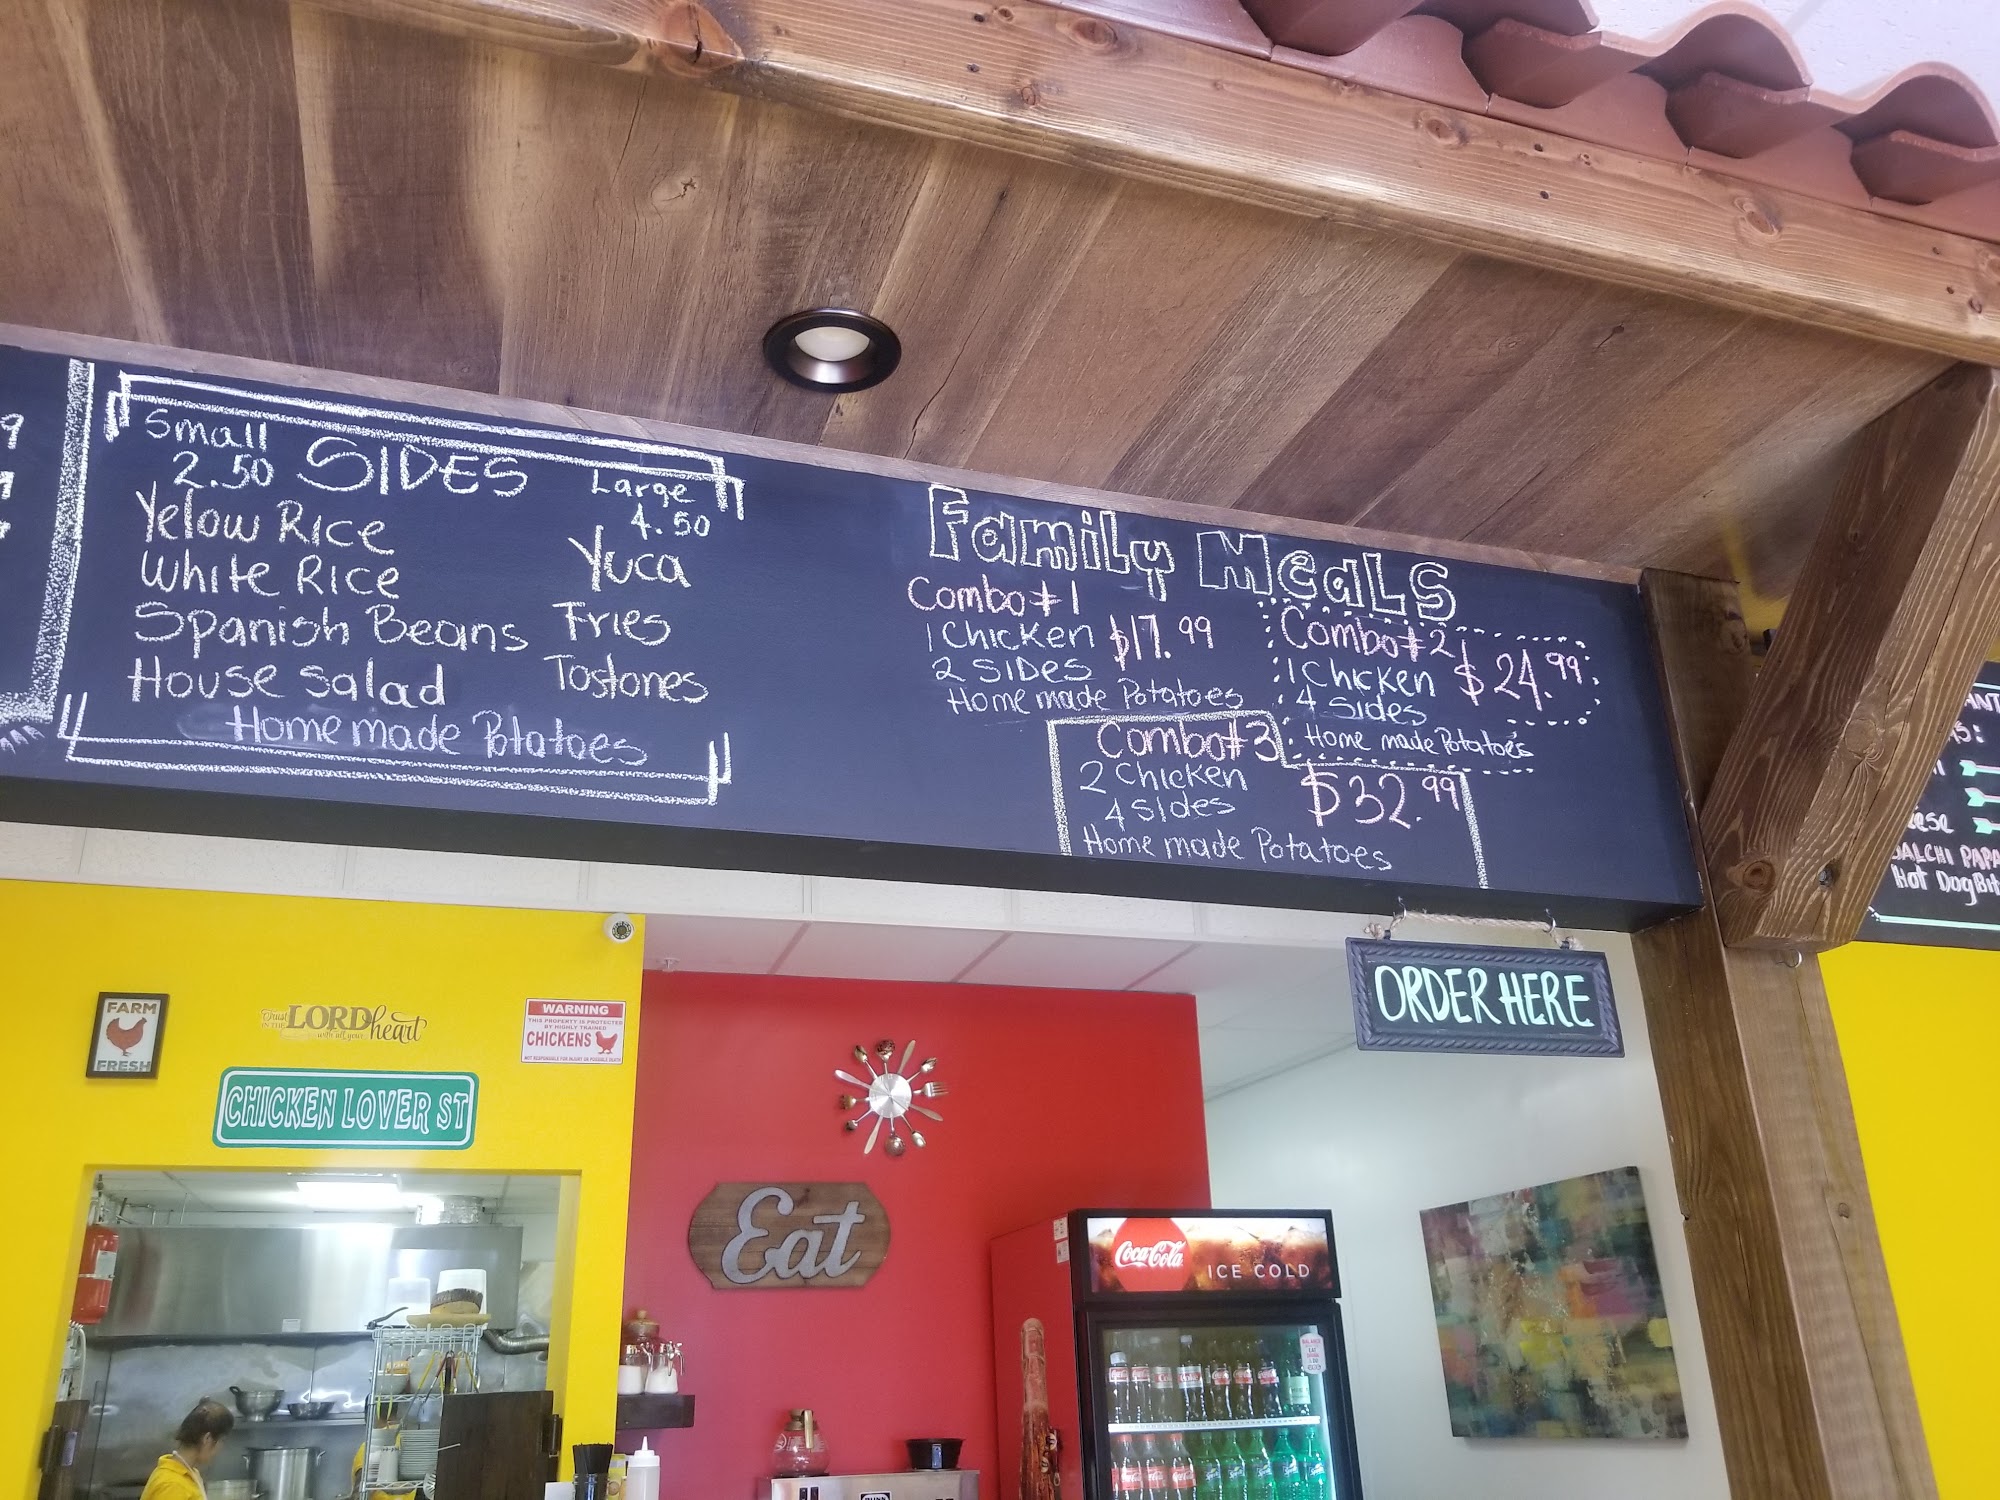 Small
2.50
SIDES
Large
4.50
Yelow Rice
White Rice
Spanish Beans
House salad
Yuca
Fries
Tostones
Home made Potatoes
Family Meals
Combo #1
1 Chicken
2 SIDES
$17.99
Home made Potatoes
Combo #2
1 Chicken
4 Sides
$24.99
Home made Potatoes
Combo #3
2 Chicken
4 sides
$32.99
Home made Potatoes
ORDER HERE
FARM
FRESH
Trust
IN THE LORD
with all your heart
WARNING
THIS PROPERTY IS PROTECTED
BY HIGHLY TRAINED
CHICKENS
NOT RESPONSIBLE FOR INJURY OR POSSIBLE DEATH
CHICKEN LOVER ST
Eat
Coca-Cola
ICE COLD
Hot Dog